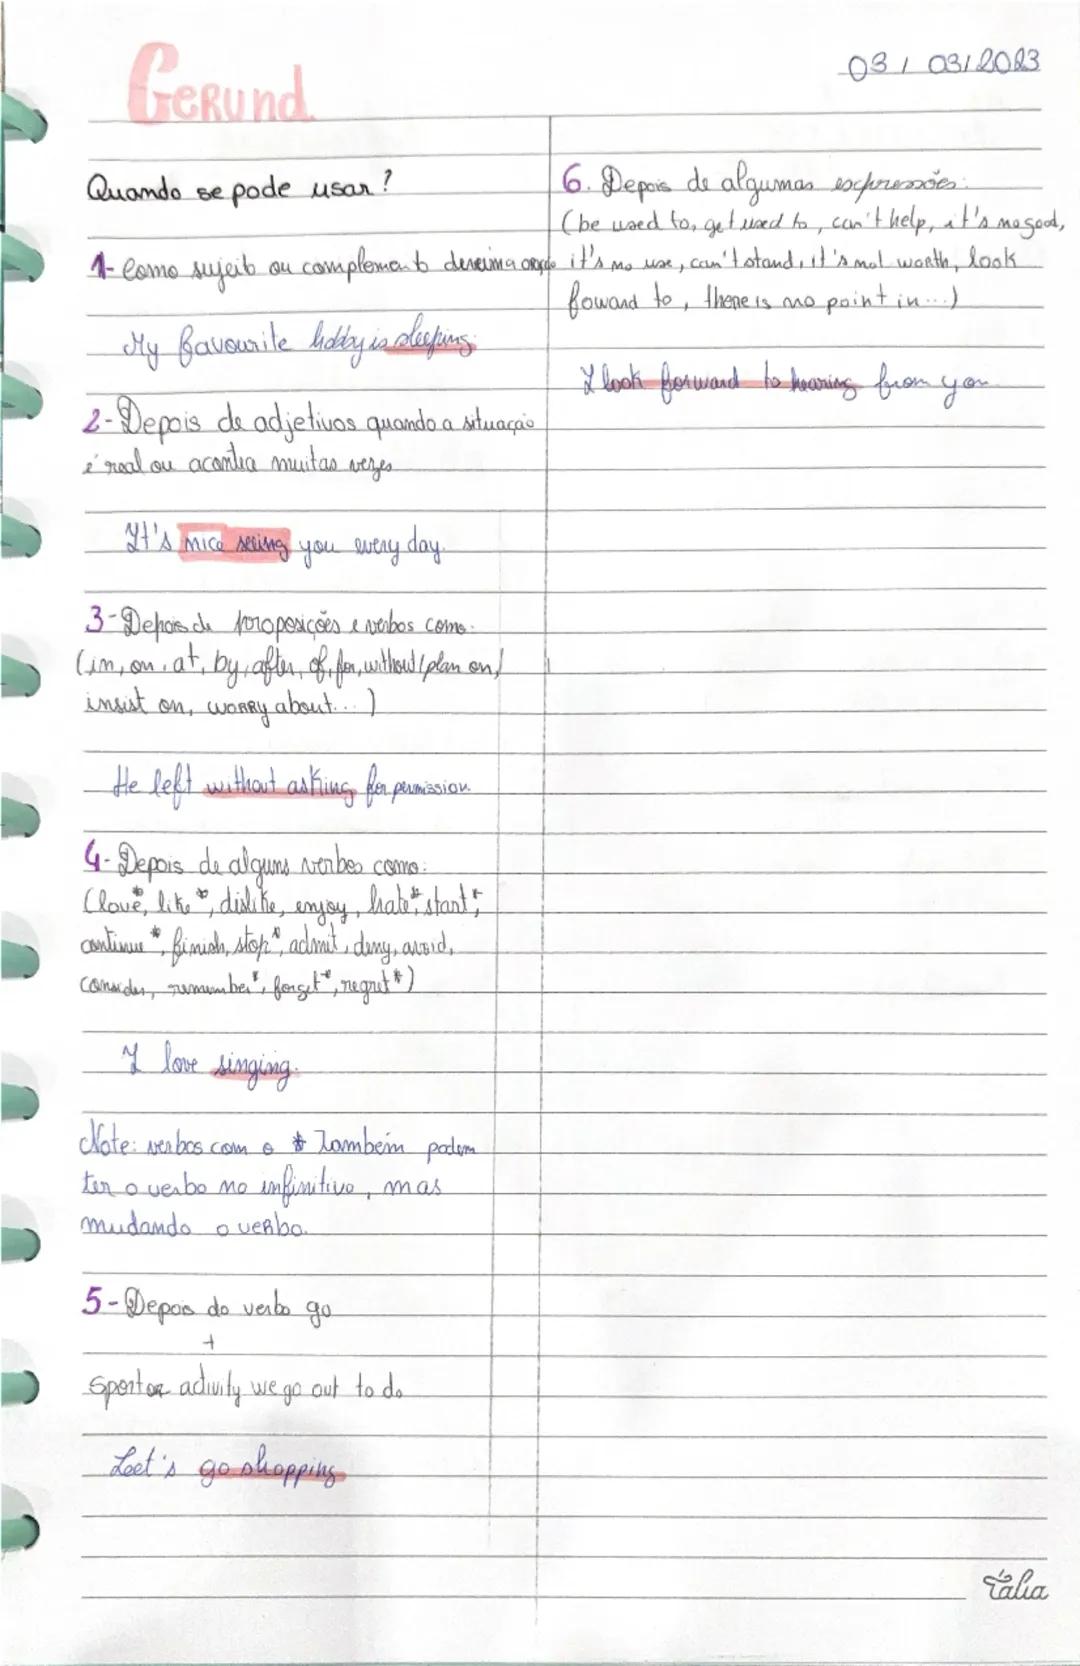 Gerund
03/03/2023
Quando se pode usar?
1- Como sujeito ou complemento de uma oração
My favourite hobby is sleeping.
2- Depois de adjetivos quando a situação
é real ou acontece muitas vezes
It's nice seeing you every day.
3- Depois de preposições e verbos como:
(in, on, at, by, after, of, for, without/plan on,
insist on, worry about...)
He left without asking for permission.
4- Depois de alguns verbos como:
(love*, like*, dislike, enjoy, hate*, start*,
continue*, finish, stop*, admit, deny, avoid,
consider, remember*, forget*, regret*)
I love singing.
Note: verbos com o * também podem
ter o verbo no infinitivo, mas
mudando o verbo.
5- Depois do verbo go
+
sport or activity we go out to do
Leet's go shopping
6. Depois de algumas expressões:
(be used to, get used to, can't help, it's no good,
it's no use, can't stand, it's not worth, look
foward to, there is no point in...)
I look forward to hearing from you
Tália